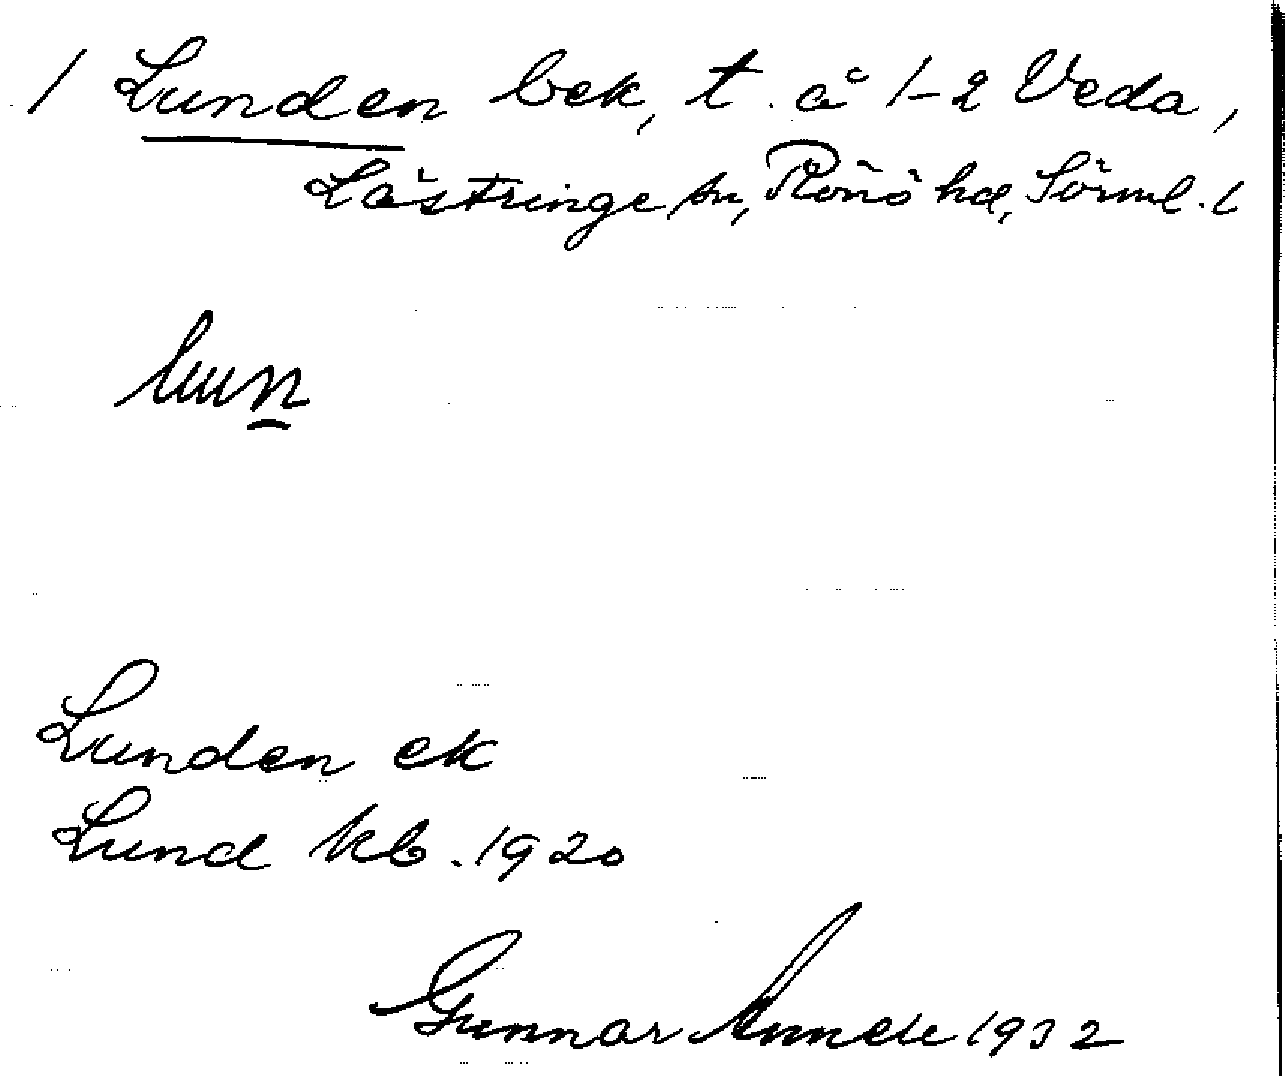 / Lunden bek, t. å 1-2 Veda,
Lästringe sn, Rönö hd, Sörml. l
lun
Lunden ek
Lund kb. 1920
Gunnar 1932